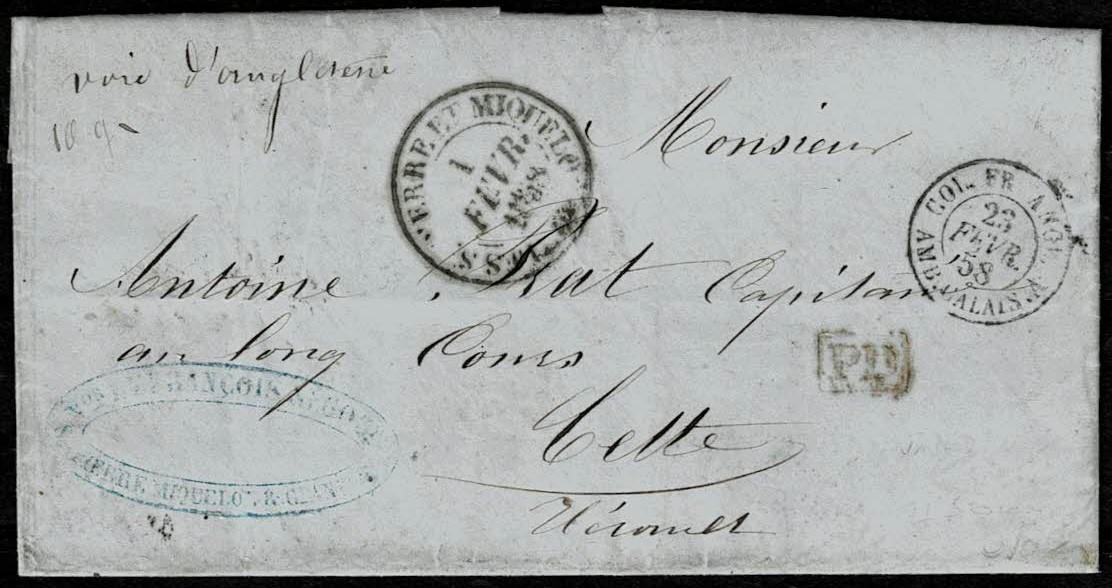 voie d'angleterre
Monsieur
Antoine Rat Capitaine
au long Cours
Cette
Hérault
PIERRE ET MIQUELON
1
FEVR.
1858
COL. FR. ANGL.
23
FEVR.
58
AMB. CALAIS. A
FRANÇOIS
PIERRE MIQUELON & GRAN